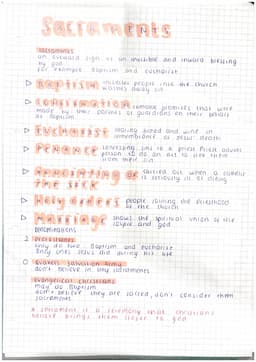 Sacraments
sacraments
an outward sign of an invisible and inward blessing
by god.
for example: Baptism and eucharist
Baptism welcomes people into the church
washes away sin
Confirmation someone promises that were
made by their parents or guardians on their behalf
at Baptism
Eucharist sharing bread and wine in
remembrance of Jesus' death
Penance confessing sins to a priest Priest advises
person to do an act to free them
from their sin
Annointing of carried out when a catholic
the sick is seriously ill or dying
Holy orders people joining the priesthood
of the church
Marriage shows the spiritual union of the
couple and god
Denominations
Protestants
only do two: Baptism and eucharist
only ones Jesus did during his life
Quakers, Salvation Army
don't believe in any sacraments
Evangelical christians
may do Baptism
don't believe they are sacred, don't consider them
sacraments
A sacrament is a ceremony that christians
believe brings them closer to god